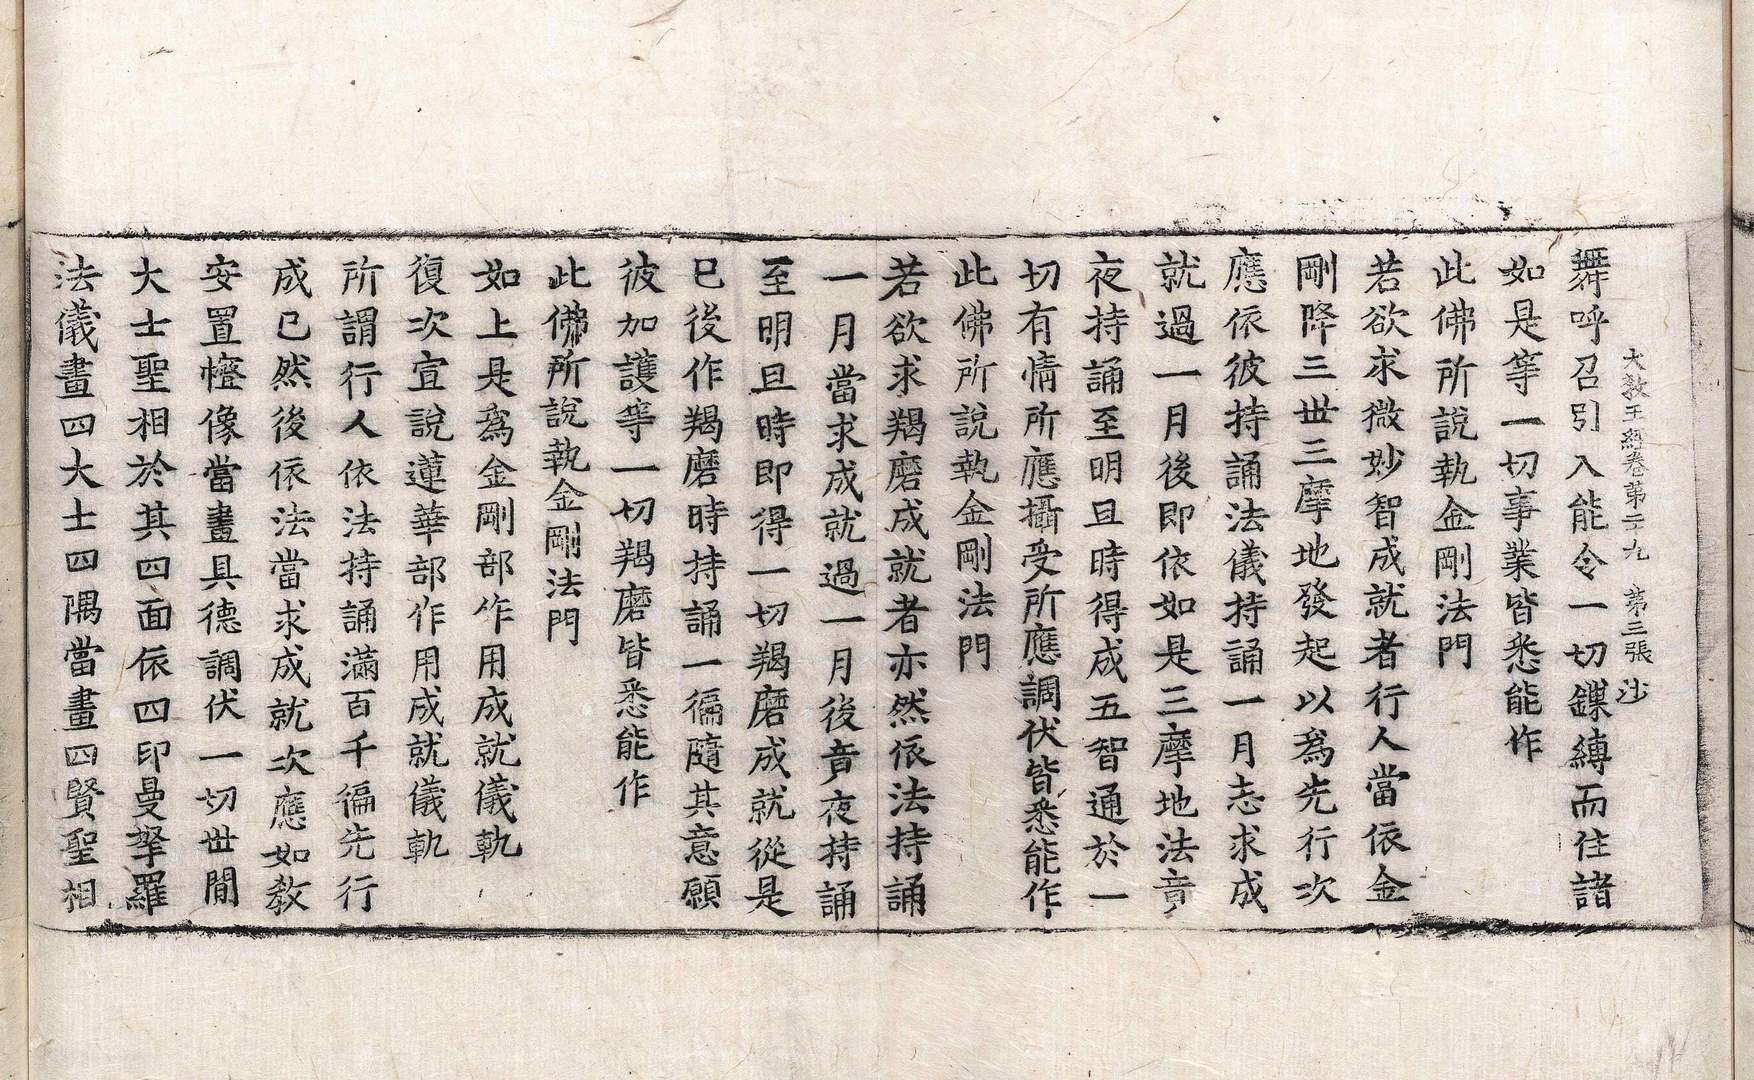 大教王經卷第二十九　第三張　沙
舞呼召引入能令一切鏁縛而住諸
如是等一切事業皆悉能作
此佛所說執金剛法門
若欲求微妙智成就者行人當依金
剛降三世三摩地發起以爲先行次
應依彼持誦法儀持誦一月志求成
就過一月後即依如是三摩地法竟
夜持誦至明旦時得成五智通於一
切有情所應攝受所應調伏皆悉能作
此佛所說執金剛法門
若欲求羯磨成就者亦然依法持誦
一月當求成就過一月後竟夜持誦
至明旦時即得一切羯磨成就從是
已後作羯磨時持誦一徧隨其意願
彼加護等一切羯磨皆悉能作
此佛所說執金剛法門
如上是爲金剛部作用成就儀軌
復次宣說蓮華部作用成就儀軌
所謂行人依法持誦滿百千徧先行
成已然後依法當求成就次應如教
安置㡧像當畫具德調伏一切世間
大士聖相於其四面依四印曼拏羅
法儀畫四大士四隅當畫四賢聖相